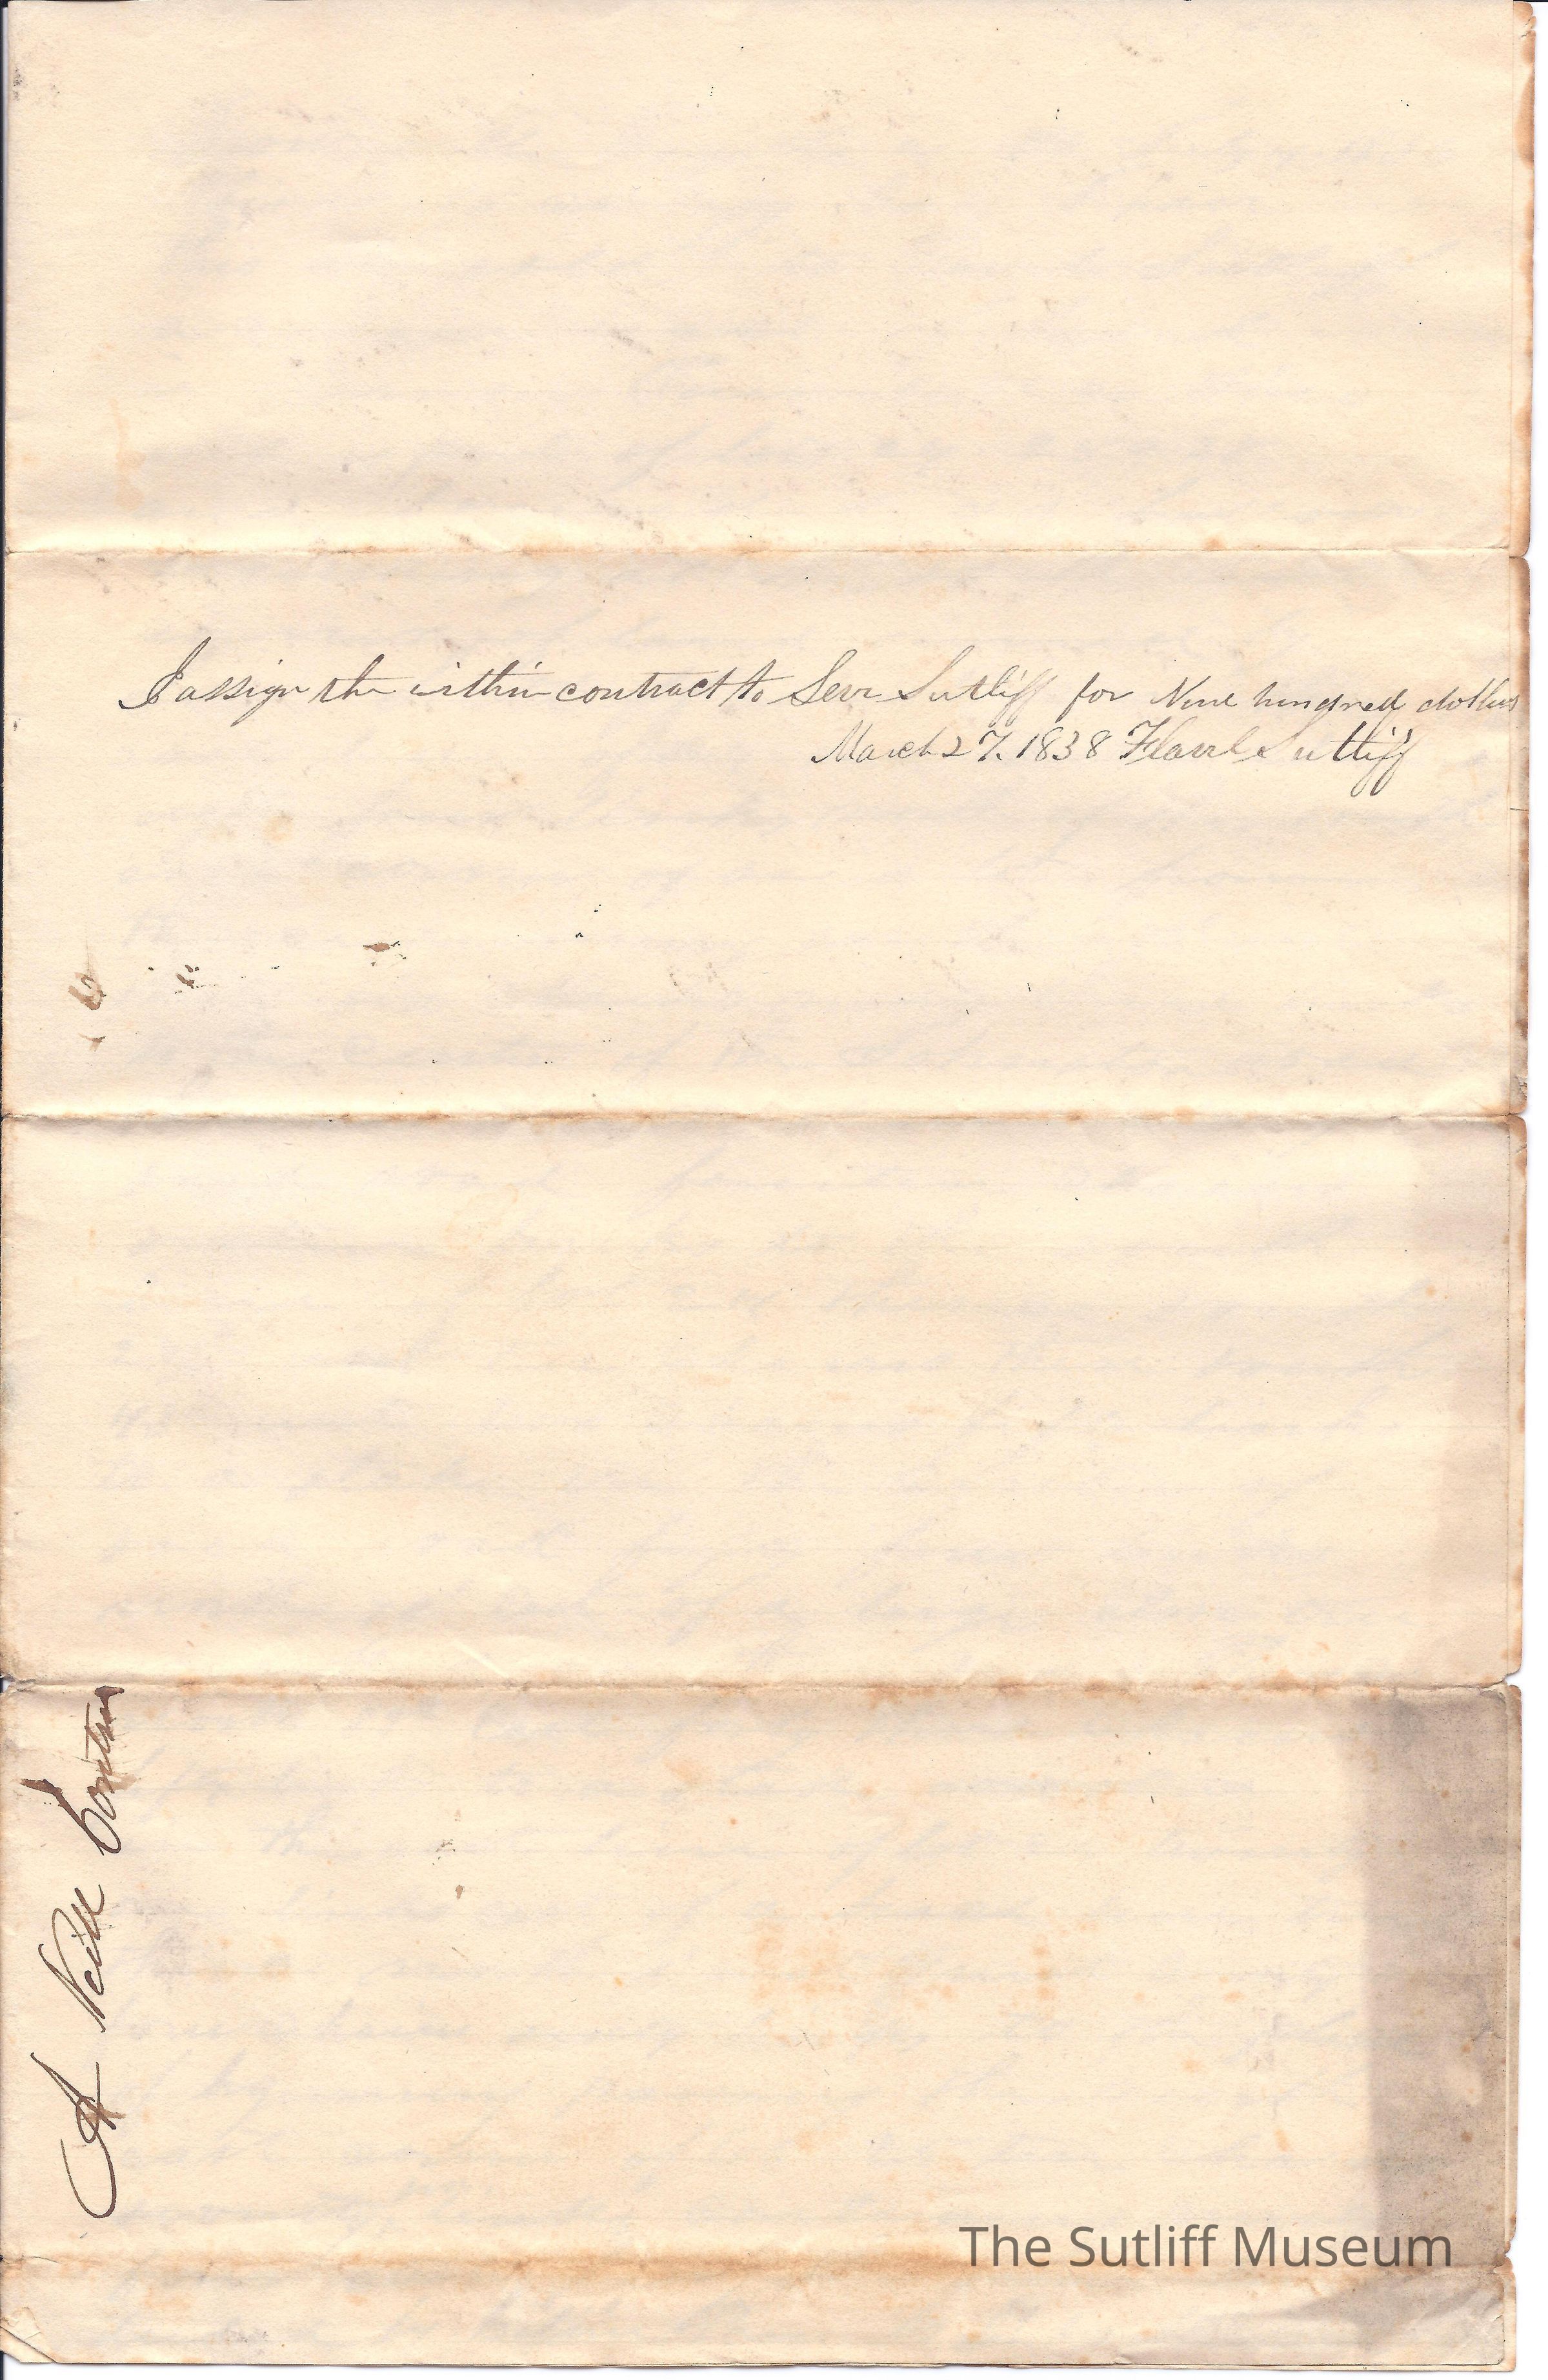 I assign the within contract to Levi Sutliff for Nine hundred dollars
March 27. 1838 Flavel Sutliff
A Neill
The Sutliff Museum